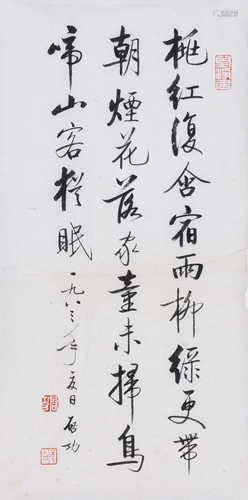 桃紅復含宿雨柳綠更帶
朝煙花落家童未掃鳥
啼山客猶眠 一九八三年夏日 启功